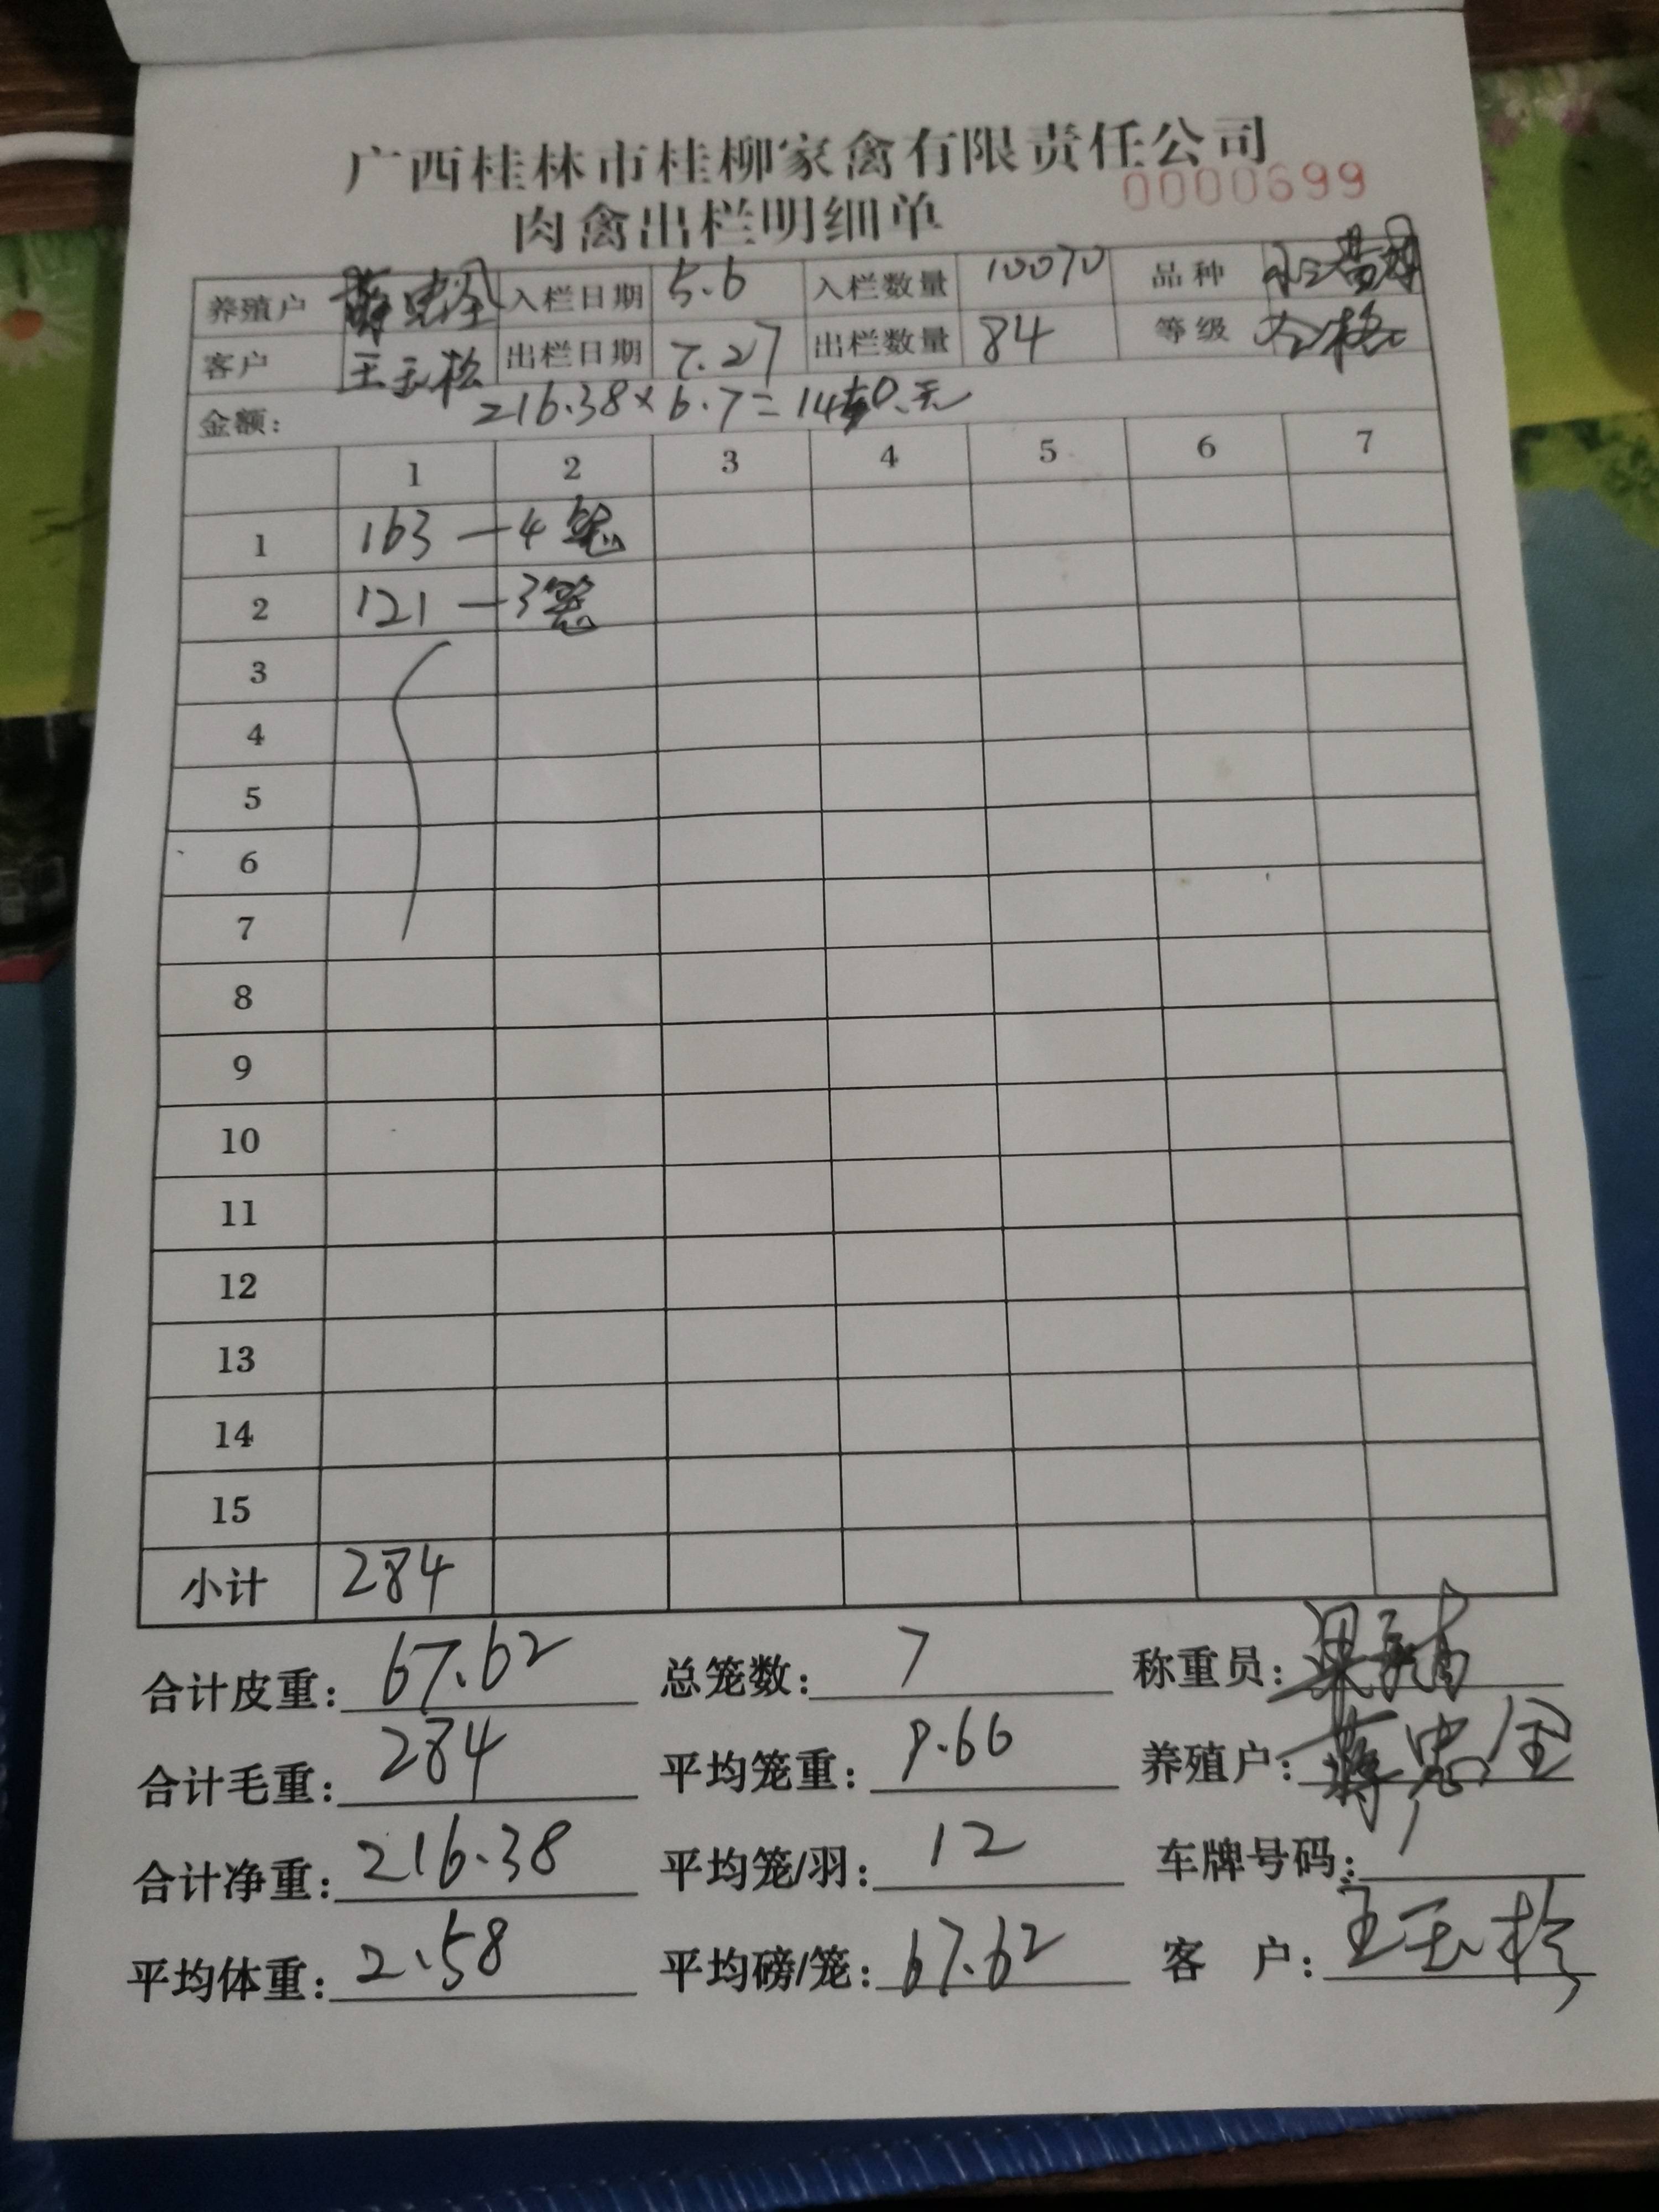 广西桂林市桂柳家禽有限责任公司
0000699
肉禽出栏明细单
养殖户 蒋忠全 入栏日期 5.6 入栏数量 10070 品种
客户 王玉松 出栏日期 7.27 出栏数量 84 等级 合格
金额: 216.38×6.7=1450.元
1 2 3 4 5 6 7
1 163 — 4笼
2 121 — 3笼
3
4
5
6
7
8
9
10
11
12
13
14
15
小计 284
合计皮重: 67.62 总笼数: 7 称重员:
合计毛重: 284 平均笼重: 9.66 养殖户: 蒋忠全
合计净重: 216.38 平均笼/羽: 12 车牌号码: /
平均体重: 2.58 平均磅/笼: 67.62 客 户: 王玉松